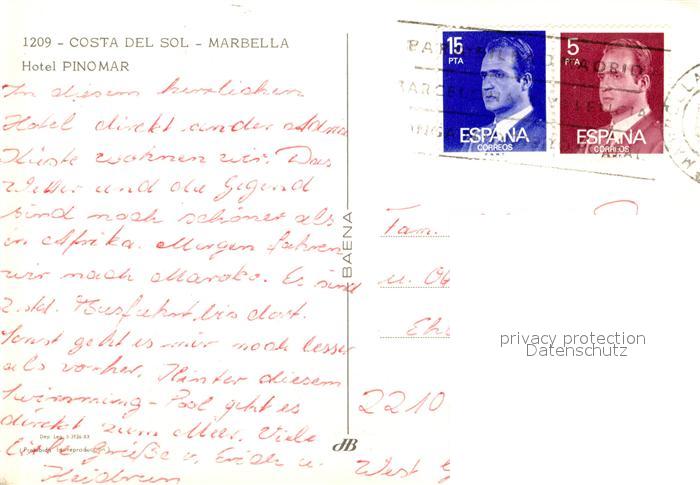 1209 - COSTA DEL SOL - MARBELLA
Hotel PINOMAR
In diesem herrlichen
Hotel direkt an der
Küste wohnen wir. Das
Wetter und die Gegend
sind noch schöner als
in Afrika. Morgen fahren
wir nach Maroko. Es sind
2 Std. Busfahrt bis dort.
Sonst geht es mir noch besser
als vorher. Hinter diesem
Swimming-Pool geht es
direkt zum Meer. Viele
liebe Grüße v. Erich u.
Heidrun
BAENA
15
PTA
ESPAÑA
CORREOS
5
PTA
ESPAÑA
CORREOS
Fam.
u.
2210
West
privacy protection
Datenschutz